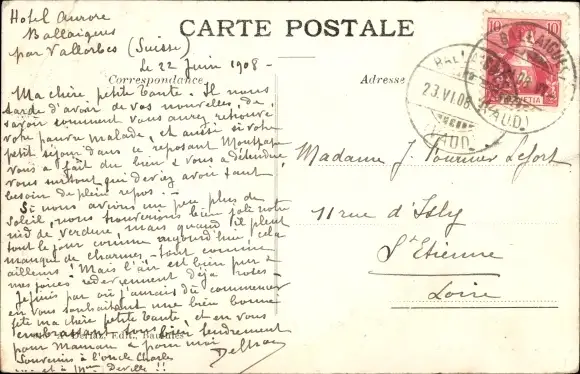 Hotel Aurore
Ballaigues
par Vallorbes (Suisse)
le 22 Juin 1908 -
CARTE POSTALE
Correspondance
Adresse
Ma chère petite tante. Il nous
tarde d'avoir de vos nouvelles, de
savoir comment vous avez retrouvé
votre pauvre malade, et aussi si votre
petit séjour dans ce reposant
vous a fait du bien & vous a détendue,
vous surtout qui deviez avoir tant
besoin de plein repos -
Si nous avions un peu plus de
soleil, nous trouverions bien joli notre
nid de verdure, mais quand il pleut
tout le jour comme aujourd'hui, cela
manque de charmes, - tout comme
ailleurs! Mais l'air est bien pur &
mes joies redeviennent déjà roses -
Je finis par où j'aurais dû commencer
en vous souhaitant une bien bonne
fête ma chère petite tante, et en vous
embrassant tous bien tendrement
pour Maman & pour moi
Souvenirs à l'oncle Charles
et à Mme Deville !!
Madame J. Fournier Lefort
11 rue d'Isly
St Etienne
Loire
10
HELVETIA
BALLAIGUES
23.VI.08
(VAUD)